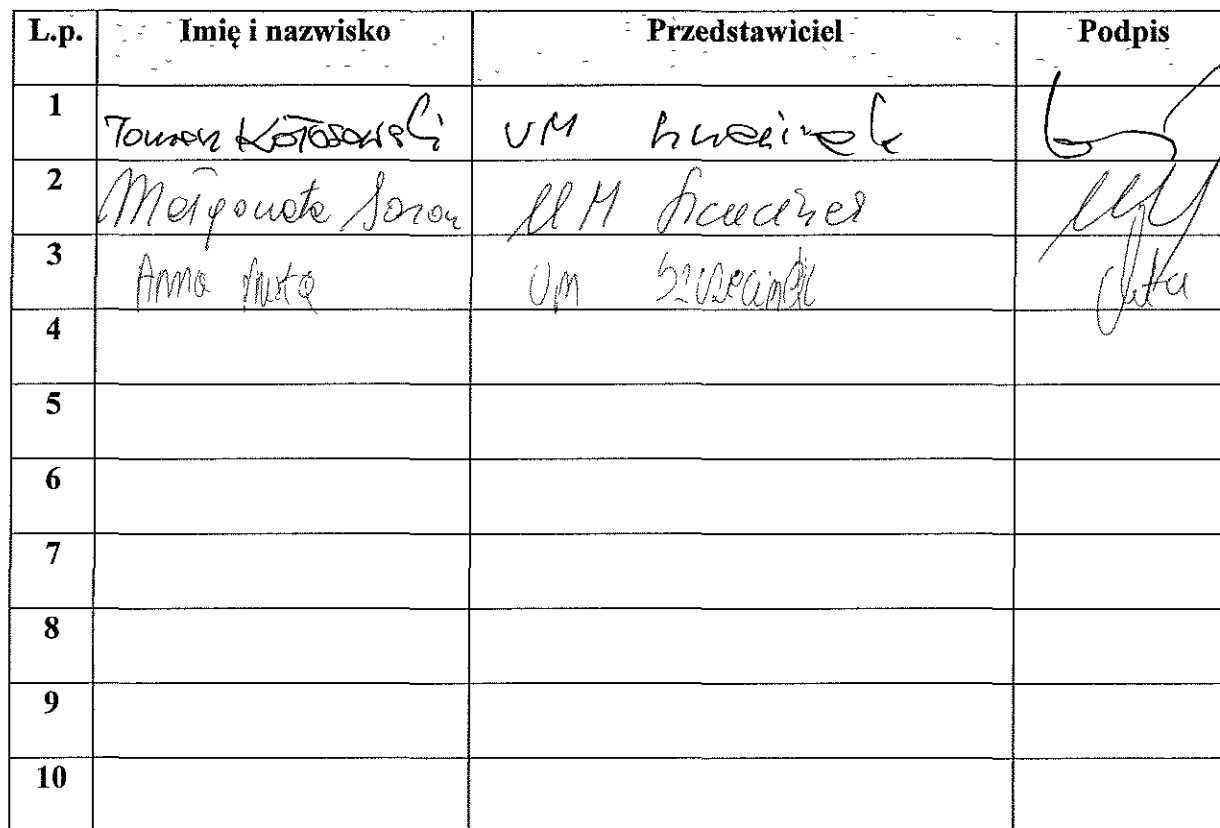 L.p. Imię i nazwisko Przedstawiciel Podpis
1 Tomasz UM Szczecinek
2 Małgorzata UM Szczecinek
3 Anna UM Szczecinek
4
5
6
7
8
9
10